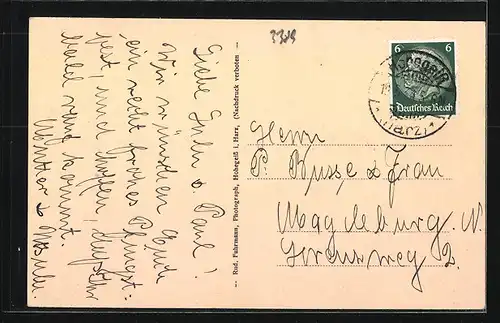 3319
Liebe Suhr u. Paul!
Wir wünschen Euch
ein recht frohes Pfingst-
fest, und hoffen, daß Ihr
bald rauf kommt.
Günther u.
— Rud. Fuhrmann, Photograph, Hohegeiß i. Harz. (Nachdruck verboten) —
6 6
Deutsches Reich
(Harz)
Herrn
P. Busse u. Frau
Magdeburg. N.
weg 2.